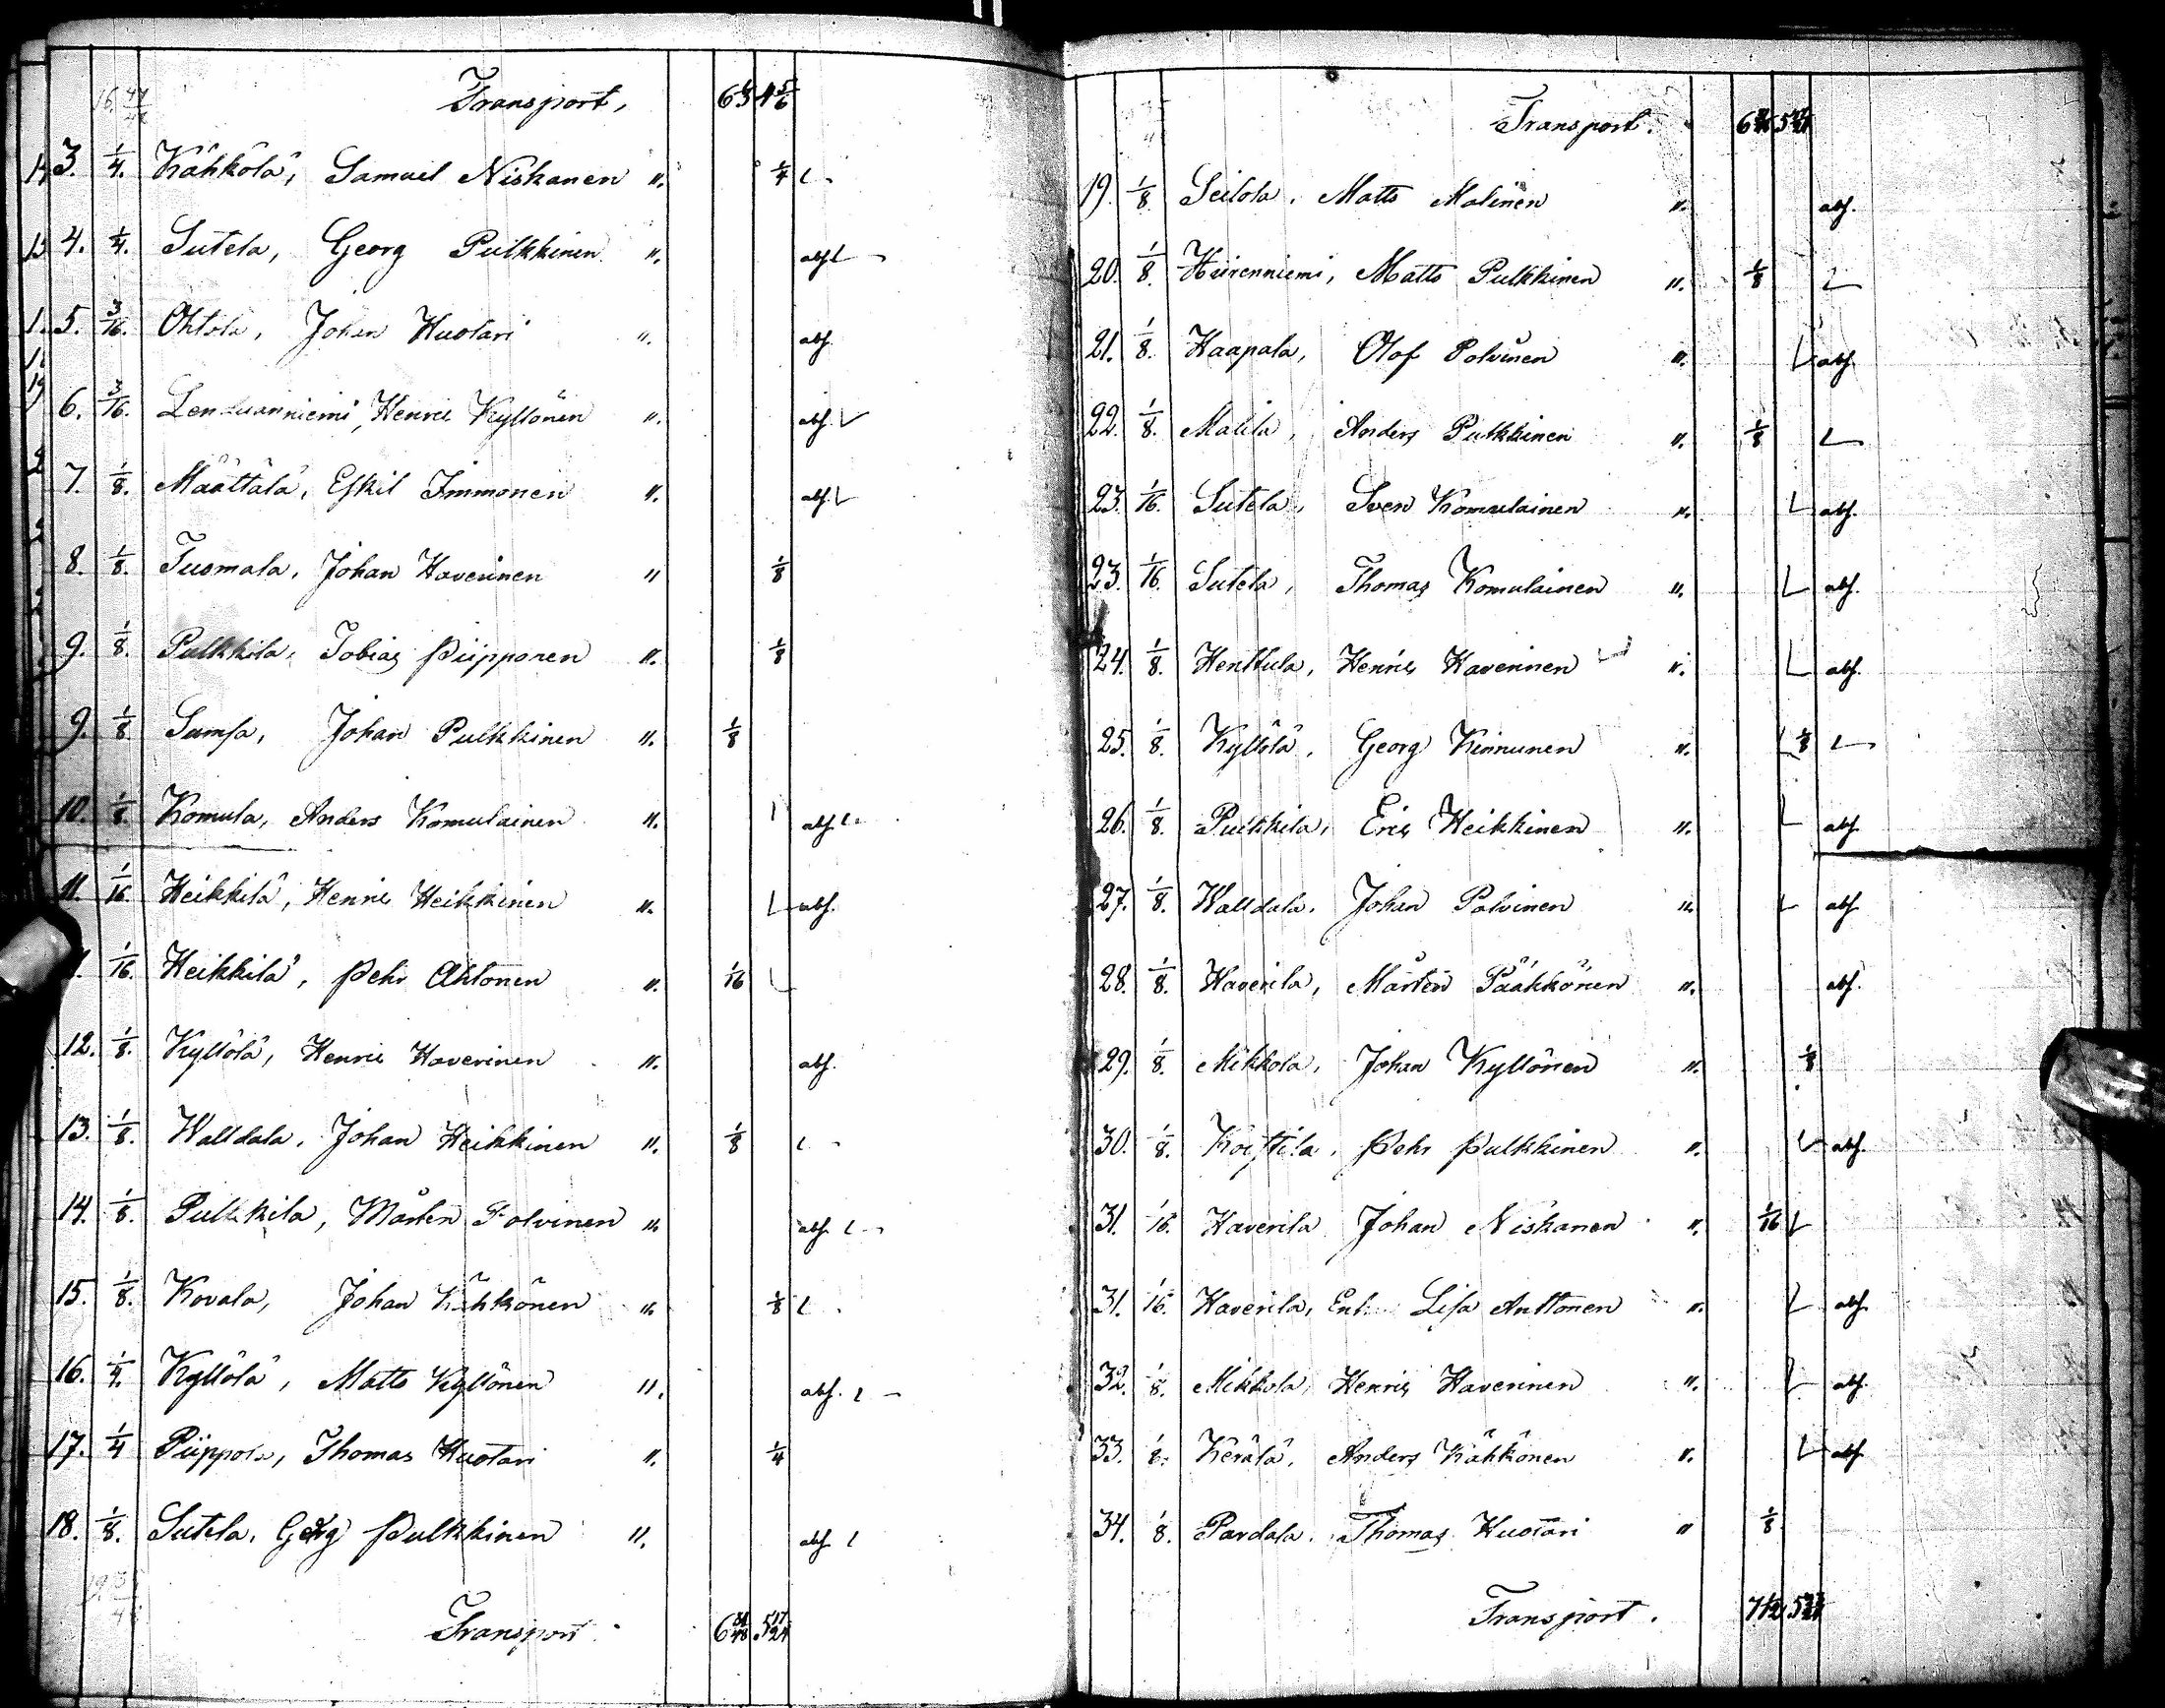 Transport, 6 1/3 4 5/6
3. 1/4. Kähkölä, Samuel Niskanen ". 1/4
4. 1/4. Sutela, Georg Pulkkinen ". abs.
5. 3/16. Ohtola, Johan Huotari ". abs.
6. 3/16. Henric Kyllönen ". abs.
7. 1/8. Määttälä, Eskil Immonen ". abs.
8. 1/8. Tuomala, Johan Haverinen " 1/8
9. 1/8. Pulkkila, Tobias Piipponen ". 1/8
9. 1/8. Sumsa, Johan Pulkkinen ". 1/8
10. 1/8. Komula, Anders Komulainen ". abs.
11. 1/16. Heikkilä, Henric Heikkinen ". abs.
1/16. Heikkilä, Pehr Ahtonen ". 1/16
12. 1/8. Kyllölä, Henric Haverinen ". abs.
13. 1/8. Walldala, Johan Heikkinen ". 1/8
14. 1/8. Pulkkila, Mårten Polvinen " abs.
15. 1/8. Kovala, Johan Kähkönen " 1/8
16. 1/4. Kyllölä, Matts Kyllönen ". abs.
17. 1/4 Piippola, Thomas Huotari ". 1/4
18. 1/8. Sutela, Georg Pulkkinen ". abs.
Transport. 6 5 17/24
Transport. 6 5
19. 1/8. Seilola, Matts Malinen ". abs.
20. 1/8. Hiirenniemi, Matts Pulkkinen ". 1/8
21. 1/8. Haapala, Olof Polvinen ". abs.
22. 1/8. Malila, Anders Pulkkinen ". 1/8
23. 1/16. Sutela, Sven Komulainen ". abs.
23. 1/16. Sutela, Thomas Komulainen ". abs.
24. 1/8. Henttula, Henric Haverinen ". abs.
25. 1/8. Kyllölä, Georg Kinnunen ". 1/8
26. 1/8. Pulkkila, Eric Heikkinen ". abs.
27. 1/8. Walldala, Johan Polvinen " abs.
28. 1/8. Haverila, Mårten Pääkkönen ". abs.
29. 1/8. Mikkola, Johan Kyllönen ". 1/8
30. 1/8. Koistila, Pehr Pulkkinen ". abs.
31. 1/16. Haverila Johan Niskanen ". 1/16
31. 1/16. Haverila, Enk. Lisa Anttonen ". abs.
32. 1/8. Mikkola, Henric Haverinen ". abs.
33. 1/8. Kerälä, Anders Kähkönen ". abs.
34. 1/8. Pardala, Thomas Huotari " 1/8
Transport. 7 1/12 5